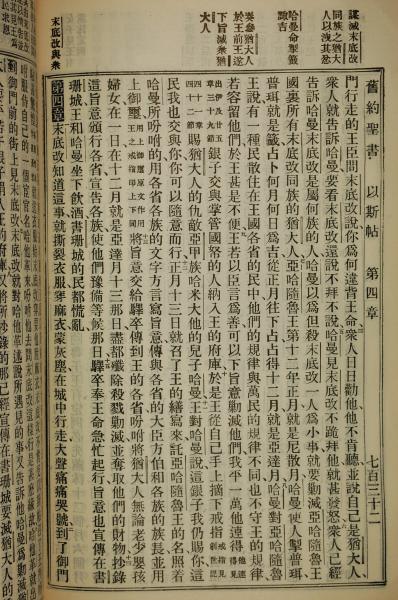 舊約聖書 以斯帖 第四章 七百三十二
謀滅末底改
同族之猶大
人以洩其忿
哈曼命掣籤
諏吉
奏叅猶大人
於王前王遂
下旨滅衆猶
大人
末底改與衆
門行走的王臣問末底改說你爲何違背王命衆人日日勸他他不肯聽並說自己是猶大人
衆人就告訴哈曼要看末底改還說不拜不說哈曼見末底改不跪拜他就甚發怒衆人已經
告訴哈曼末底改是屬何族的人哈曼以爲但殺末底改一人爲小事就要勦滅亞哈隨魯王
國裏所有末底改同族的猶大人亞哈隨魯王第十二年正月就是尼散月哈曼使人掣普珥
普珥就是籤占卜何月何日爲吉從正月往下占占得十二月就是亞達月哈曼對亞哈隨魯
王說有一種民散住在王國各省的民中他們的規律與萬民的規律不同也不守王的規律
若容留他們於王甚是不便王若以臣言爲善可以下旨意勦滅他們我平一萬他連得他連得見
出伊及廿五章三十九節銀子交與掌管國帑的人納入王的府庫於是王從自己手上摘下戒指戒指見創世記
四十一章四十二節賜猶大人的仇敵亞甲族哈米大他的兒子哈曼王對哈曼說這銀子我仍賜你這
民我也交與你你可以隨意而行正月十三日就召了王的繕寫來託亞哈隨魯王的名照着
哈曼所吩咐的用各省各族的文字方言寫旨意傳與各省的大臣方伯和各族的族長並用
上御璽御璽原文作用王之戒指印上下同將旨意交給驛卒傳到王的各省吩咐將猶大人無論老少嬰孩
婦女在一日在十二月就是亞達月十三那日盡都殲除殺戮勦滅並奪取他們的財物抄錄
這旨意頒行各省宣告各族使他們豫備等候那日驛卒奉王命急忙起行旨意也宣傳在書
珊城王和哈曼坐下飲酒書珊城的民都慌亂
第四章末底改知道這事就撕裂衣服穿麻衣蒙灰塵在城中行走大聲痛痛哭號到了御門